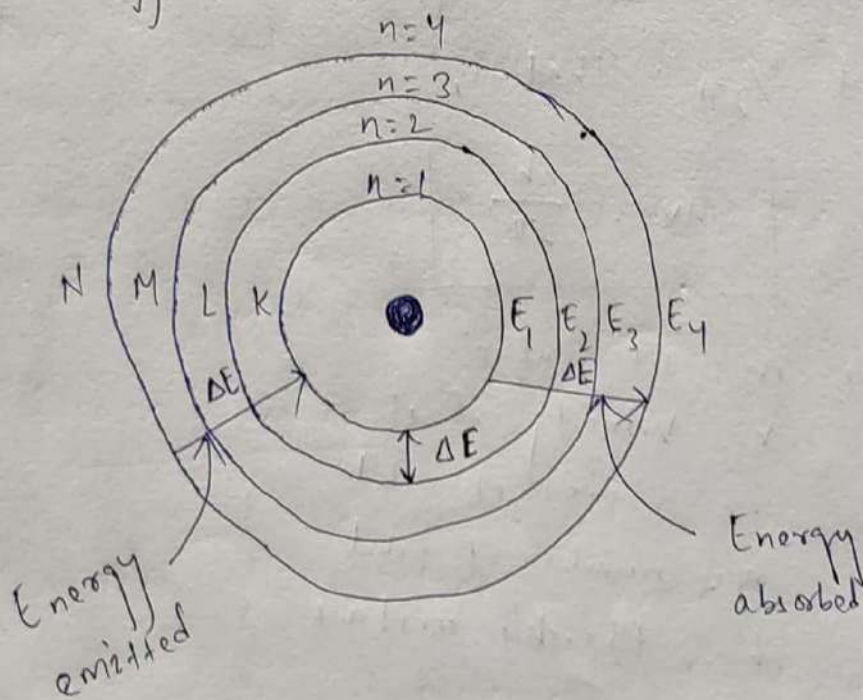 n=4
n=3
n=2
n=1
N M L K E₁ E₂ E₃ E₄
ΔE ΔE
ΔE
Energy
emitted
Energy
absorbed